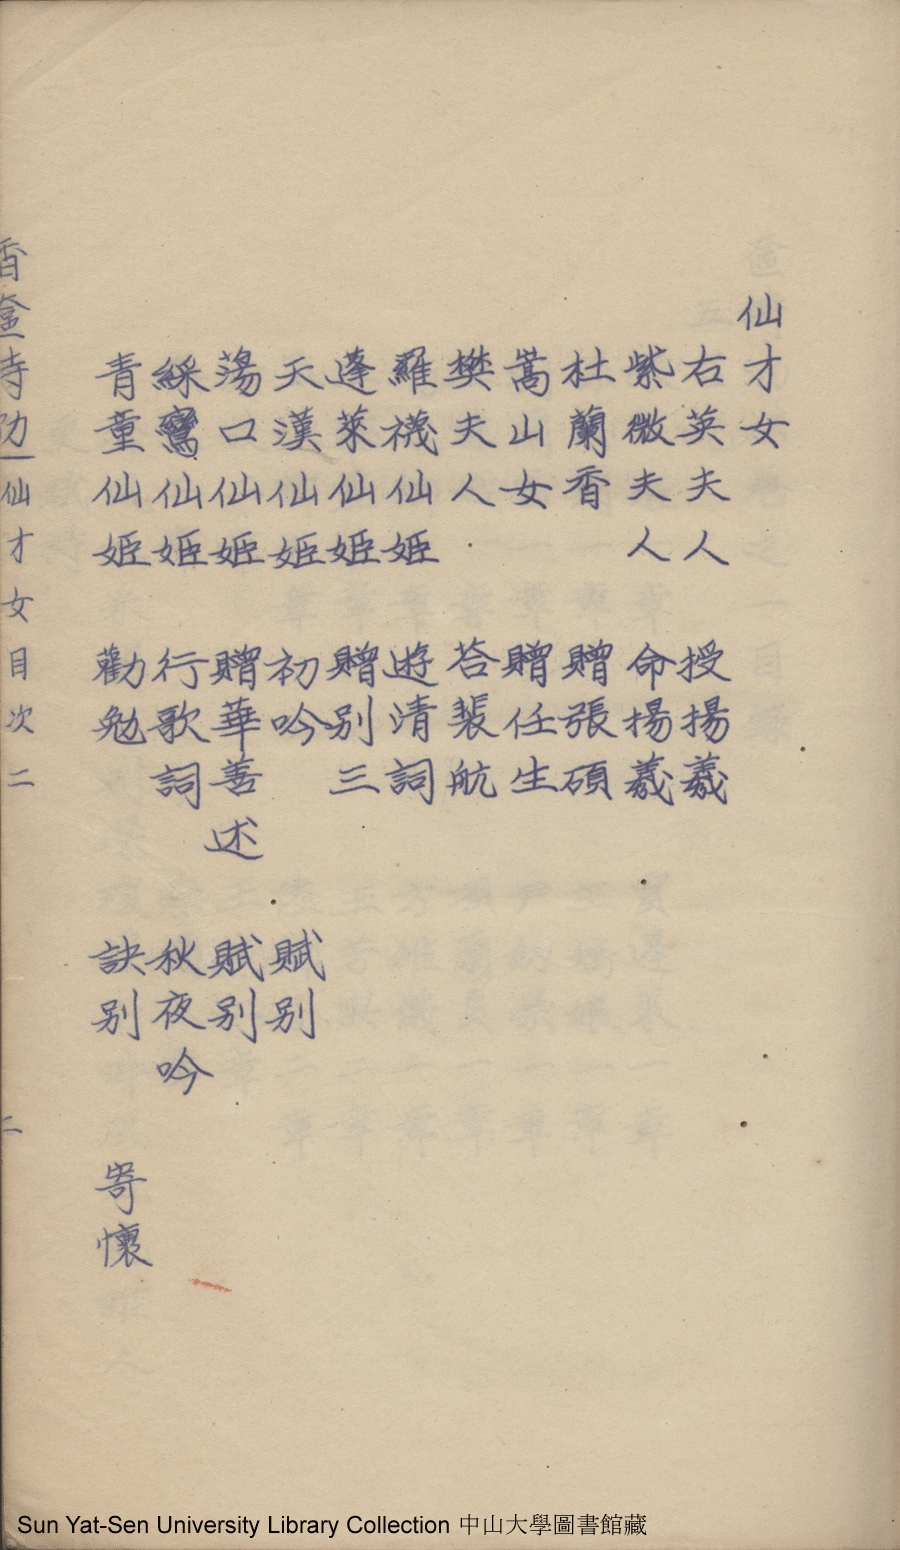 仙才女
右英夫人 授揚羲
紫微夫人 命揚羲
杜蘭香 贈張碩
嵩山女 贈任生
樊夫人 荅裴航
羅襪仙姬 遊清詞
蓬萊仙姬 贈別三
天漢仙姬 初吟 賦別
蕩口仙姬 贈華善述 賦別
綵鸞仙姬 行歌詞 秋夜吟
青童仙姬 勸勉 訣別 寄懷
香奩詩 仙才女目次二 二
Sun Yat-Sen University Library Collection 中山大學圖書館藏